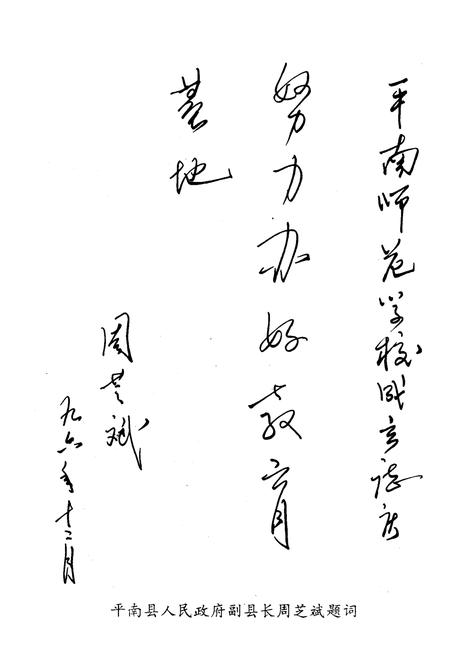 平南师范学校成立誌庆
努力办好教育
基地
周芝斌
九六年十二月
平南县人民政府副县长周芝斌题词